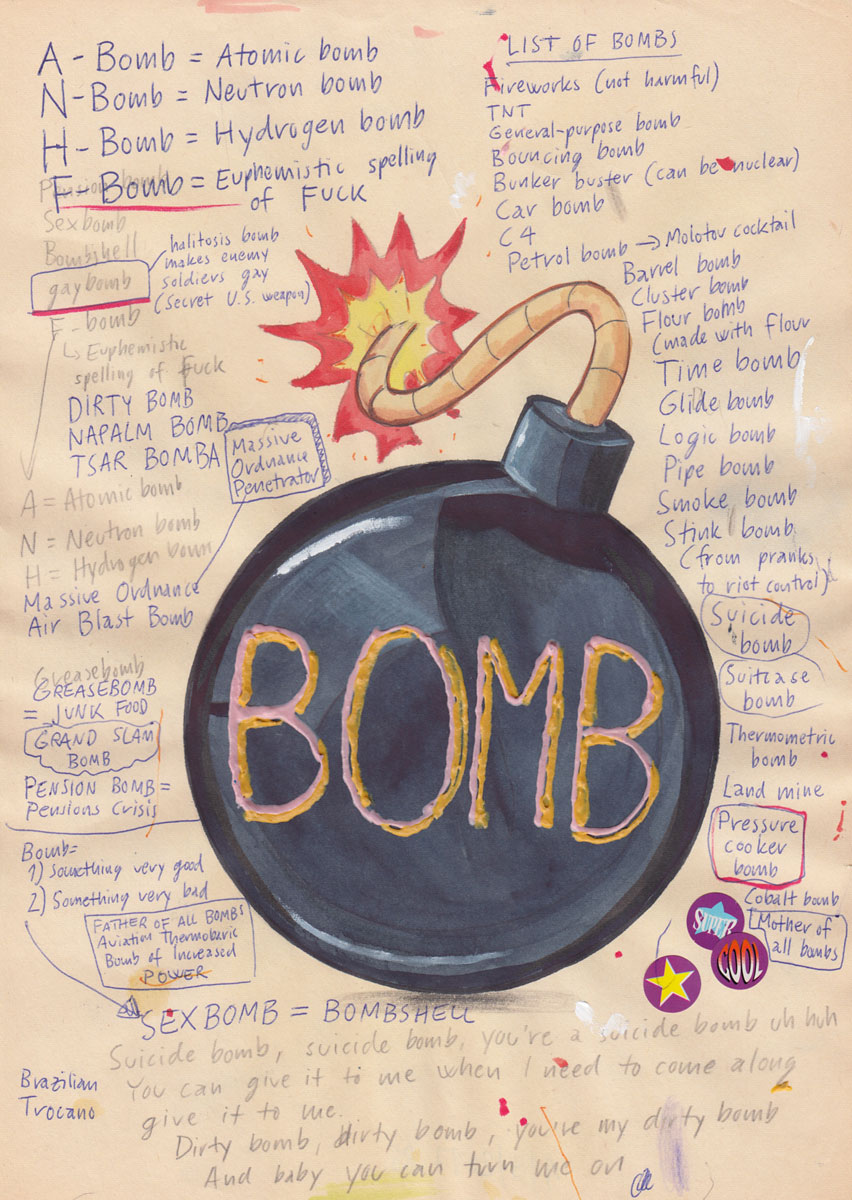 A - Bomb = Atomic bomb
N - Bomb = Neutron bomb
H - Bomb = Hydrogen bomb
F - Bomb = Euphemistic spelling
of FUCK
Pension bomb
Sex bomb
Bombshell
gay bomb
halitosis bomb
makes enemy
soldiers gay
(secret U.S. weapon)
F - bomb
Euphemistic
spelling of Fuck
DIRTY BOMB
NAPALM BOMB
TSAR BOMBA
Massive
Ordnance
Penetrator
A = Atomic bomb
N = Neutron bomb
H = Hydrogen bomb
Massive Ordnance
Air Blast Bomb
Greasebomb
GREASEBOMB
= JUNK FOOD
GRAND SLAM
BOMB
PENSION BOMB =
Pensions Crisis
Bomb=
1) Something very good
2) Something very bad
FATHER OF ALL BOMBS
Aviation Thermobaric
Bomb of Increased
POWER
LIST OF BOMBS
Fireworks (not harmful)
TNT
General-purpose bomb
Bouncing bomb
Bunker buster (can be nuclear)
Car bomb
C4
Petrol bomb → Molotov cocktail
Barrel bomb
Cluster bomb
Flour bomb
(made with flour
Time bomb
Glide bomb
Logic bomb
Pipe bomb
Smoke bomb
Stink bomb
(from pranks
to riot control)
Suicide
bomb
Suitcase
bomb
Thermometric
bomb
Land mine
Pressure
cooker
bomb
Cobalt bomb
Mother of
all bombs
SUPER
COOL
BOMB
SEXBOMB = BOMBSHELL
Suicide bomb, suicide bomb, you're a suicide bomb uh huh
You can give it to me when I need to come along
give it to me.
Dirty bomb, dirty bomb, you're my dirty bomb
And baby you can turn me on
Brazilian
Trocano